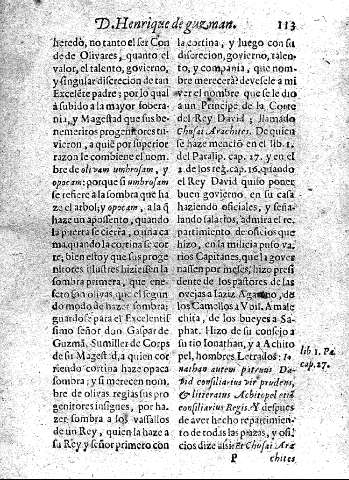 D. Henrique de guzman. 113
heredò, no tanto el ser Con
de de Olivares, quanto el
valor, el talento, govierno,
y singular discrecion de tan
Excelēte padre; por lo qual
à subido a la mayor sobera-
nia, y Magestad que sus be-
nemeritos progenitores tu-
vieron, a quiē por superior
razon le combiene el nom-
bre de olivam umbrosam, y
opacam: porque si umbrosam
se refiere a la sombra que ha
ze el arbol, y opacam, a la q̃
haze un aposento, quando
la puerta se cierra, o una ca
ma, quando la cortina se cor
re, bien estoy que sus proge-
nitores ilustres hiziessen la
sombra primera, que ene-
cto son olivas que el segun
do modo de hazer sombra,
guardose para el Excelentis
simo señor don Gaspar de
Guzmā, Sumiller de Corps
de su Magestad, a quien cor
riendo cortina haze opaca
sombra; y si merecen nom-
bre de olivas regias sus pro
genitores insignes, por ha-
zer sombra a los vassallos
de un Rey, quien la haze a
su Rey y señor primero con
la cortina, y luego con su
discrecion, govierno, talen-
to, y compañia, que nom-
bre merecerà? devesele a mi
ver el nombre que se le dio
a un Principe de la Corte
del Rey David; llamado
Chusai Arachites. De quien
se haze menciō en el lib. 1.
del Paralip. cap. 27. y en el
2 de los reg. cap. 16. quando
el Rey David quiso poner
buen govierno en su casa
haziendo oficiales, y seña-
lando salarios, admira el re-
partimiento de oficios que
hizo, en la milicia puso va-
rios Capitanes, que la gover
nassen por meses, hizo presi
dente de los pastores de las
ovejas a Iaziz Agareno, de
los Camellos a Vbil. A male
chita, de los bueyes a Sa-
phat. Hizo de su consejo a
su tio Ionathan, y a Achito
pel, hombres Letrados: Io-
nathan autem patruus Da-
vid consiliarius vir prudens,
& litteratus Achitopel etiā
consiliarius Regis. Y despues
de aver hecho repartimien-
to de todas las plazas, y ofi-
cios dize assi: Et Chusai Ara
lib 1. Pa.
cap. 27.
P chites